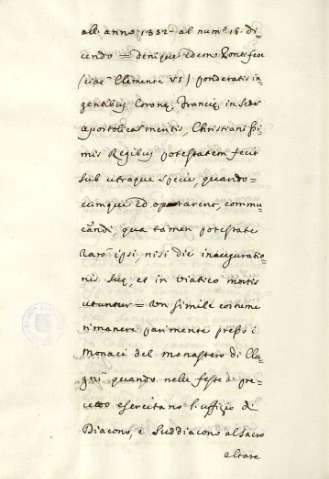 all' anno 1332. al num.º 18. di-
cendo = denique idem Pontifex
(cioè Clemente VI) ponderatis in-
gentibus Coronę Francię in Sede
apostolica meritis, Christianissi-
mis Regibus potestatem fecit
sub utraque specie, quando-
cumque id optarent, commu-
cãndi, qua tamen potestate
raro ipsi, nisi die inauguratio-
nis suę, et in viatico mortis
utuntur = Un simile costume
rimanere parimente presso i
Monaci del monastero di Clu-
gnì quando nelle feste di pre-
cetto esercitano l'uffizio di
Diacono, e Suddiacono al sacro
altare